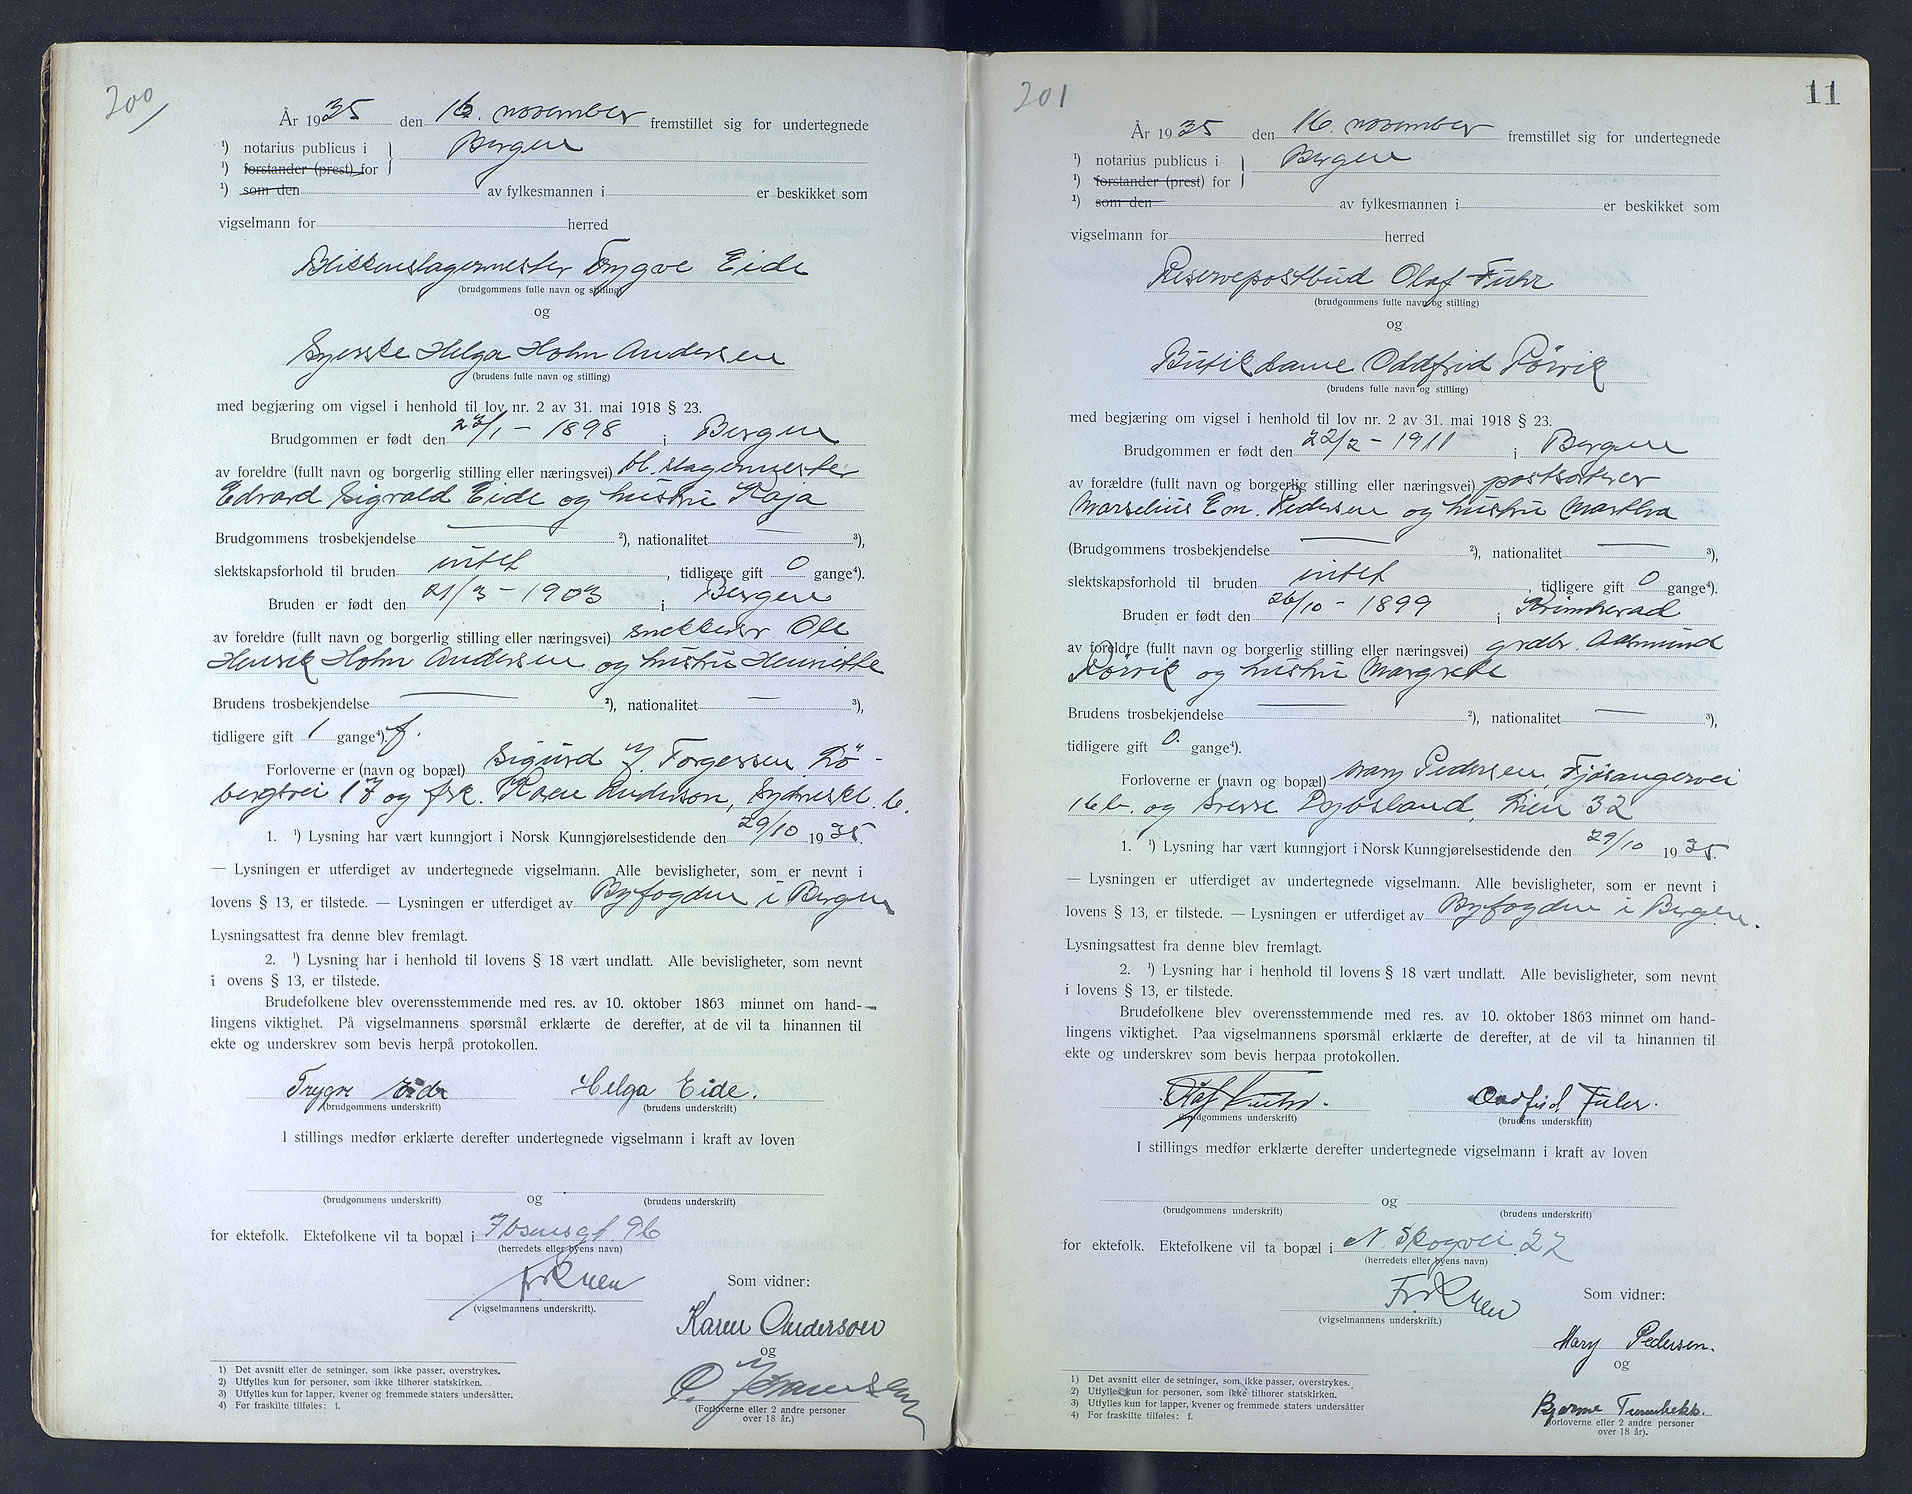 200
År 1935 den 16. november fremstillet sig for undertegnede
¹) notarius publicus i } Bergen
¹) forstander (prest) for
¹) som den av fylkesmannen i er beskikket som
vigselmann for herred
Blikkenslagermester Trygve Eide
(brudgommens fulle navn og stilling)
og
Syerske Helga Holm Andersen
(brudens fulle navn og stilling)
med begjæring om vigsel i henhold til lov nr. 2 av 31. mai 1918 § 23.
Brudgommen er født den 23/1 - 1898 i Bergen
av foreldre (fullt navn og borgerlig stilling eller næringsvei) bl.slagermester
Edvard Sigvald Eide og hustru Kaja
Brudgommens trosbekjendelse — ²), nationalitet — ³),
slektskapsforhold til bruden intet, tidligere gift 0 gange⁴).
Bruden er født den 21/3 - 1903 i Bergen
av foreldre (fullt navn og borgerlig stilling eller næringsvei) snekker Ole
Henrik Holm Andersen og hustru Henriette
Brudens trosbekjendelse — ²), nationalitet — ³),
tidligere gift 1 gange⁴). f.
Forloverne er (navn og bopæl) Sigurd Torgersen, Lö-
bergsvei 17 og frk. Karen Anderson, Sydneskl. 6.
1. ¹) Lysning har vært kunngjort i Norsk Kunngjørelsestidende den 29/10 1935.
— Lysningen er utferdiget av undertegnede vigselmann. Alle bevisligheter, som er nevnt i
lovens § 13, er tilstede. — Lysningen er utferdiget av Byfogden i Bergen
Lysningsattest fra denne blev fremlagt.
2. ¹) Lysning har i henhold til lovens § 18 vært undlatt. Alle bevisligheter, som nevnt
i ovens § 13, er tilstede.
Brudefolkene blev overensstemmende med res. av 10. oktober 1863 minnet om hand-
lingens viktighet. På vigselmannens spørsmål erklærte de derefter, at de vil ta hinannen til
ekte og underskrev som bevis herpå protokollen.
Trygve Eide Helga Eide.
(brudgommens underskrift) (brudens underskrift)
I stillings medfør erklærte derefter undertegnede vigselmann i kraft av loven
og
(brudgommens underskrift) (brudens underskrift)
for ektefolk. Ektefolkene vil ta bopæl i Ibsensgt. 96
(herredets eller byens navn)
(vigselmannens underskrift).
Som vidner:
Karen Anderson
og
(Forloverne eller 2 andre personer
over 18 år.)
1) Det avsnitt eller de setninger, som ikke passer, overstrykes.
2) Utfylles kun for personer, som ikke tilhører statskirken.
3) Utfylles kun for lapper, kvener og fremmede staters undersåtter.
4) For fraskilte tilføies: f.
201
11
År 1935 den 16. november fremstillet sig for undertegnede
¹) notarius publicus i } Bergen
¹) forstander (prest) for
¹) som den av fylkesmannen i er beskikket som
vigselmann for herred
Reservepostbud Olaf Fuhr
(brudgommens fulle navn og stilling)
og
Butikdame Oddfrid Rörvik
(brudens fulle navn og stilling)
med begjæring om vigsel i henhold til lov nr. 2 av 31. mai 1918 § 23.
Brudgommen er født den 22/2 - 1911 i Bergen
av forældre (fullt navn og borgerlig stilling eller næringsvei) postsorterer
Marselius Em. Pedersen og hustru Martha
(Brudgommens trosbekjendelse — ²), nationalitet — ³),
slektskapsforhold til bruden intet, tidligere gift 0 gange⁴).
Bruden er født den 26/10 - 1899 i Kvinherad
av foreldre (fullt navn og borgerlig stilling eller næringsvei) grdbr. Aasmund
Rörvik og hustru Margrete
Brudens trosbekjendelse — ²), nationalitet — ³),
tidligere gift 0. gange⁴).
Forloverne er (navn og bopæl) Mary Pedersen, Fjösangervei
16b. og Sverre Dybsland, Lien 32
1. ¹) Lysning har vært kunngjort i Norsk Kunngjørelsestidende den 29/10 1935.
— Lysningen er utferdiget av undertegnede vigselmann. Alle bevisligheter, som er nevnt i
lovens § 13, er tilstede. — Lysningen er utferdiget av Byfogden i Bergen.
Lysningsattest fra denne blev fremlagt.
2. ¹) Lysning har i henhold til lovens § 18 vært undlatt. Alle bevisligheter, som nevnt
i lovens § 13, er tilstede.
Brudefolkene blev overensstemmende med res. av 10. oktober 1863 minnet om hand-
lingens viktighet. Paa vigselmannens spørsmål erklærte de derefter, at de vil ta hinannen til
ekte og underskrev som bevis herpaa protokollen.
Olaf Fuhr. Oddfrid Fuhr.
(brudgommens underskrift) (brudens underskrift)
I stillings medfør erklærte derefter undertegnede vigselmann i kraft av loven
og
(brudgommens underskrift) (brudens underskrift)
for ektefolk. Ektefolkene vil ta bopæl i N. Skogvei 22
(herredets eller byens navn)
(vigselmannens underskrift.)
Som vidner:
Mary Pedersen.
og
Bjarne
(forloverne eller 2 andre personer
over 18 år).
1) Det avsnitt eller de setninger, som ikke passer, overstrykes.
2) Utfylles kun for personer, som ikke tilhører statskirken.
3) Utfylles kun for lapper, kvener og fremmede staters undersåtter
4) For fraskilte tilføies: f.